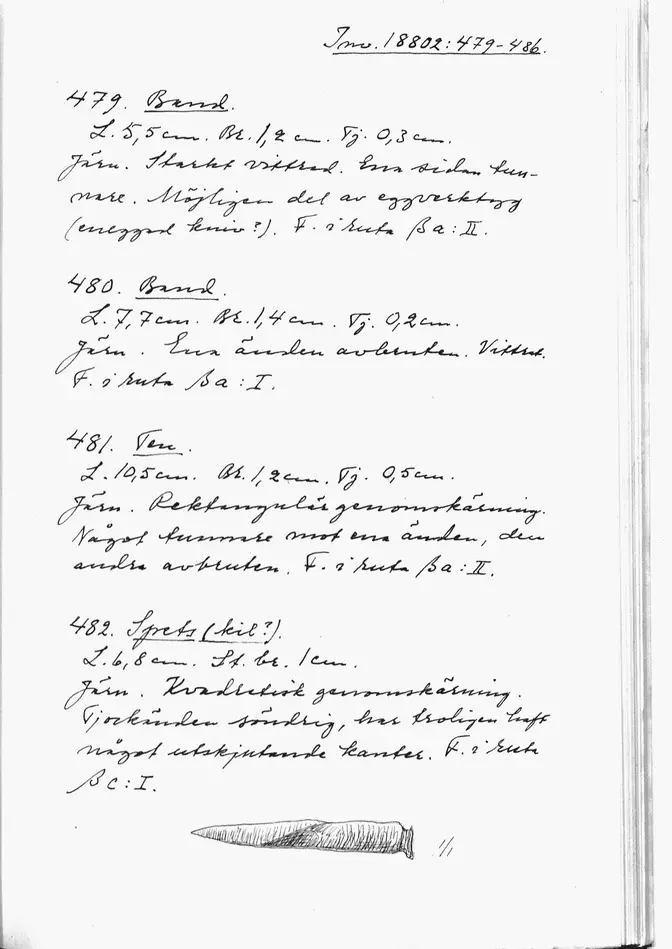 Inv. 18802:479-486.
479. Band.
L. 5,5 cm. Br. 1,2 cm. Tj. 0,3 cm.
Järn. Starkt vittrad. Ena sidan tun-
nare. Möjligen del av eggverktyg
(eneggad kniv?). F. i ruta βa:II.
480. Band.
L. 7,7 cm. Br. 1,4 cm. Tj. 0,2 cm.
Järn. Ena änden avbruten. Vittrat.
F. i ruta βa:I.
481. Ten.
L. 10,5 cm. Br. 1,2 cm. Tj. 0,5 cm.
Järn. Rektangulär genomskärning.
Något tunnare mot ena änden, den
andra avbruten. F. i ruta βa:II.
482. Spets (kil?).
L. 6,8 cm. St. br. 1 cm.
Järn. Kvadratisk genomskärning.
Tjockänden söndrig, har troligen haft
något utskjutande kanter. F. i ruta
βc:I.
1/1